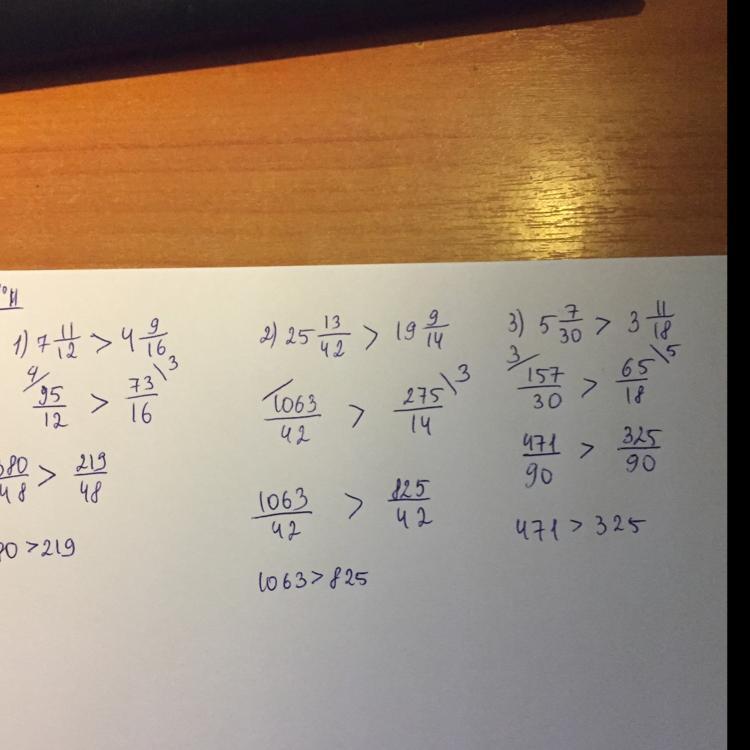 1) 7 11/12 > 4 9/16
4/ 95/12 > 73/16 \3
380/48 > 219/48
80 > 219
2) 25 13/42 > 19 9/14
/ 1063/42 > 275/14 \3
1063/42 > 825/42
1063 > 825
3) 5 7/30 > 3 11/18
3/ 157/30 > 65/18 \5
471/90 > 325/90
471 > 325